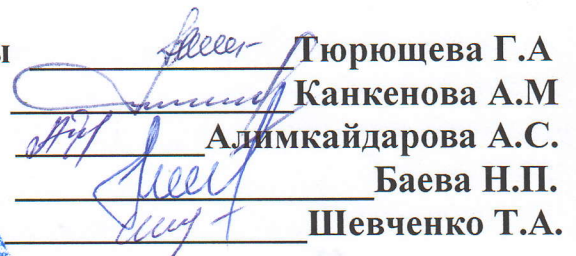 ы Тюрющева Г.А
Канкенова А.М
Алимкайдарова А.С.
Баева Н.П.
Шевченко Т.А.